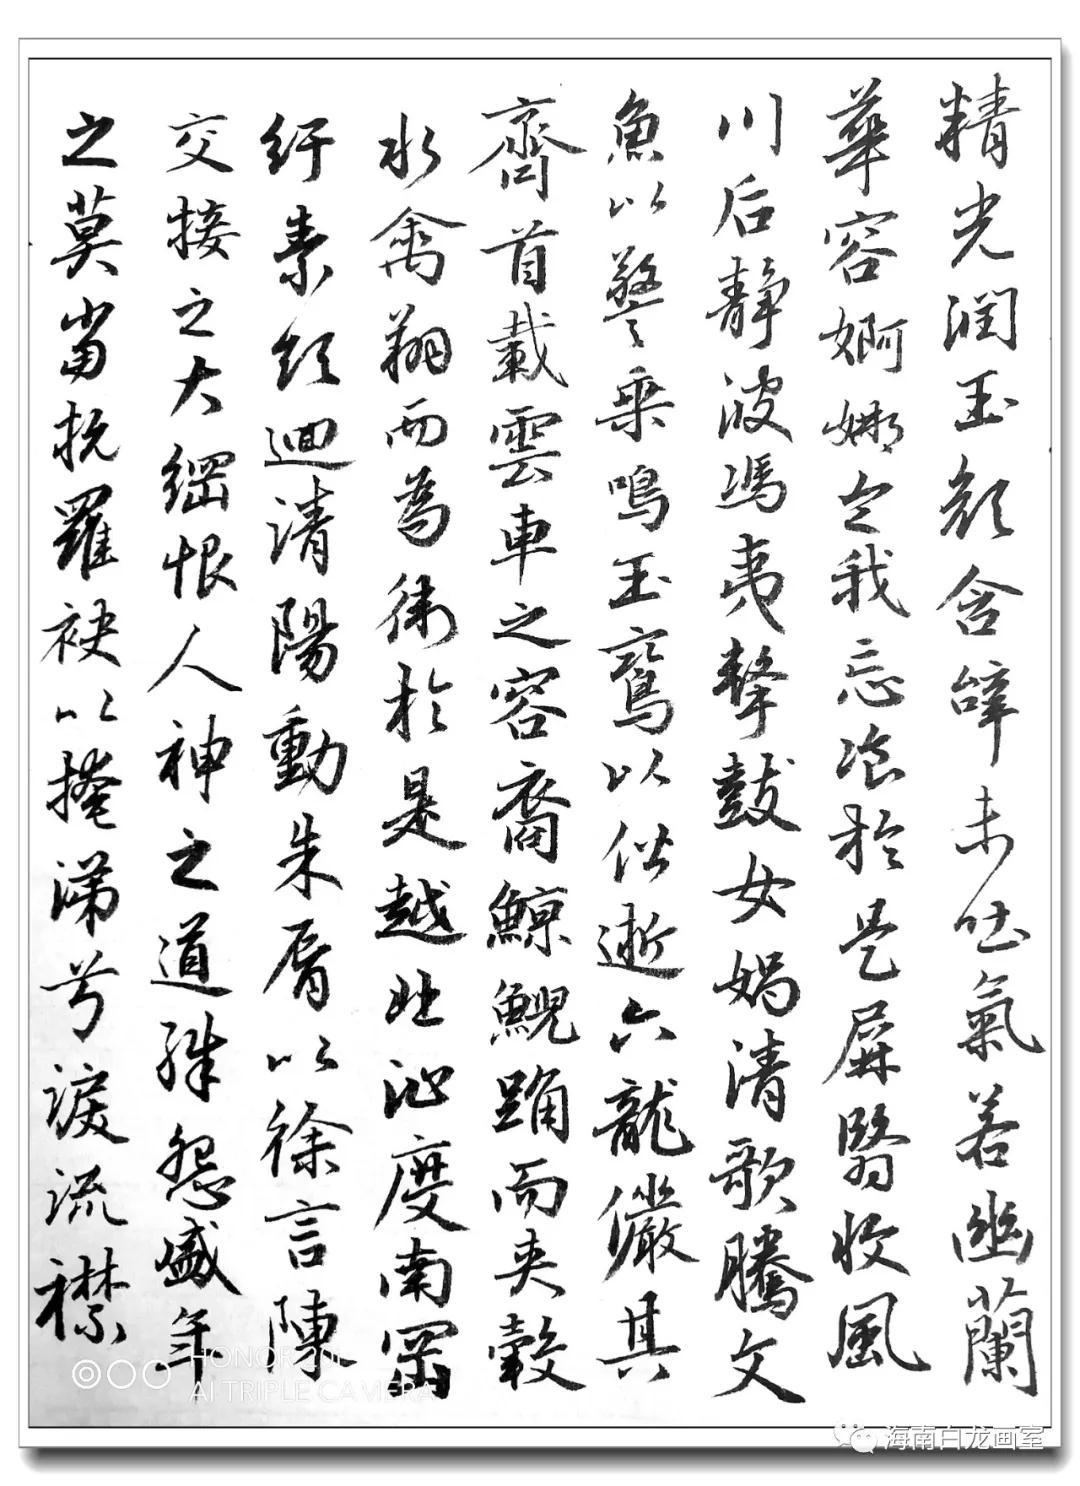 精光潤玉顏含辭未吐氣若幽蘭
華容婀娜令我忘飡於是屏翳收風
川后靜波馮夷擊鼓女媧清歌騰文
魚以警乘鳴玉鸞以偕逝六龍儼其
齊首載雲車之容裔鯨鯢踊而夾轂
水禽翔而為衛於是越北沚度南岡
紆素領迴清陽動朱脣以徐言陳
交接之大綱恨人神之道殊怨盛年
之莫當抗羅袂以掩涕兮淚流襟
HONOR 20i
AI TRIPLE CAMERA
海南白龙画室